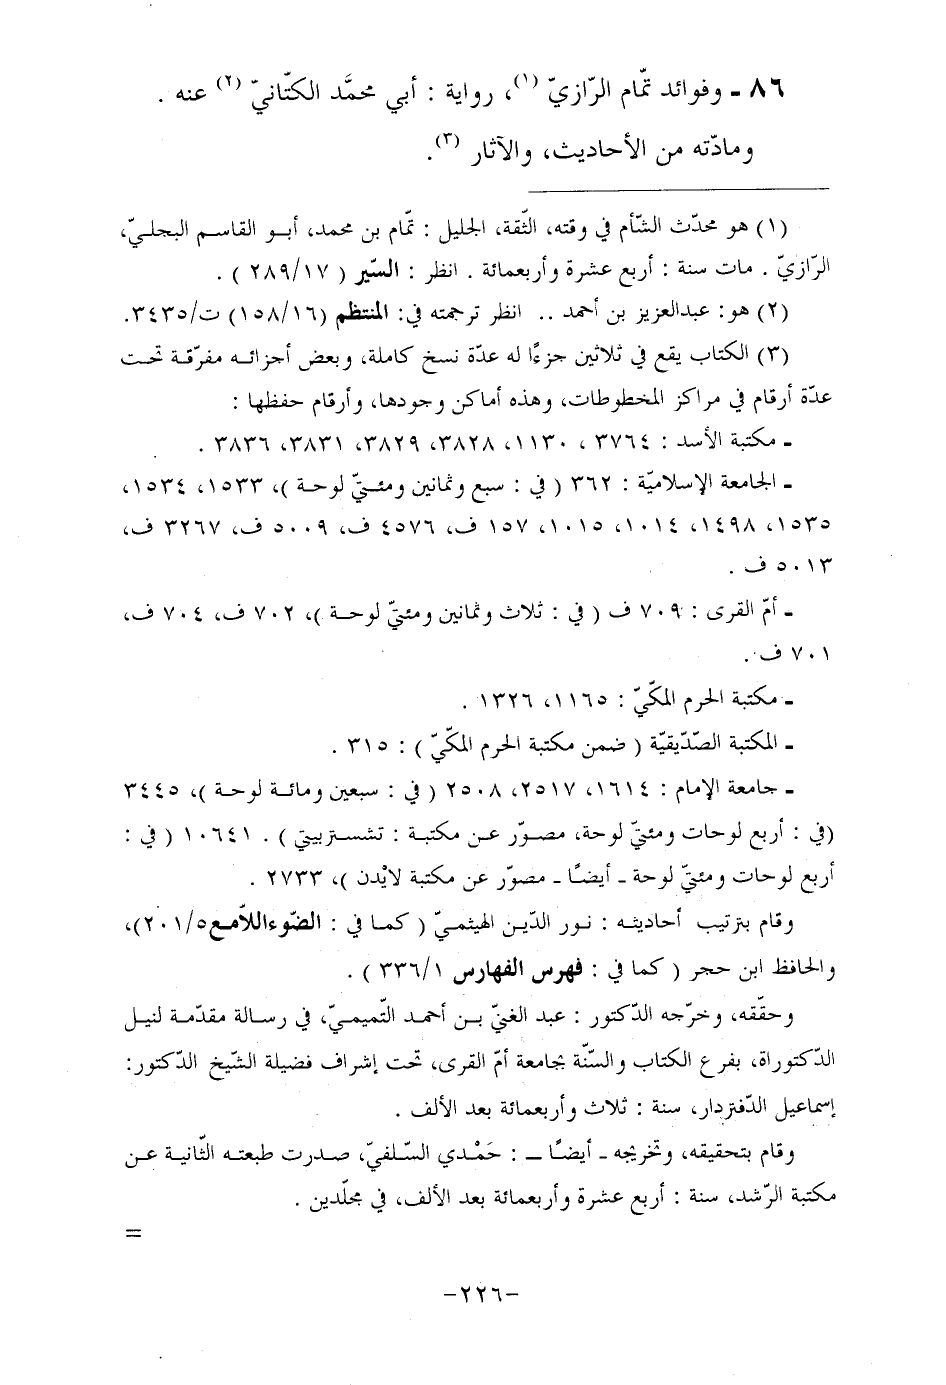 ٨٦ ـ وفوائد تمّام الرّازيّ (١)، رواية : أبي محمَّد الكتّانيّ (٢) عنه .
ومادّته من الأحاديث، والآثار (٣).
(١) هو محدّث الشّأم في وقته، الثّقة، الجليل : تمّام بن محمد، أبو القاسم البجليّ،
الرّازيّ . مات سنة : أربع عشرة وأربعمائة . انظر : السّير ( ٢٨٩/١٧ ) .
(٢) هو: عبدالعزيز بن أحمد .. انظر ترجمته في: المنتظم (١٥٨/١٦) ت/٣٤٣٥.
(٣) الكتاب يقع في ثلاثين جزءًا له عدّة نسخ كاملة، وبعض أجزائه مفرّقة تحت
عدّة أرقام في مراكز المخطوطات، وهذه أماكن وجودها، وأرقام حفظها :
ـ مكتبة الأسد : ٣٧٦٤ ، ١١٣٠، ٣٨٢٨، ٣٨٢٩، ٣٨٣١، ٣٨٣٦ .
ـ الجامعة الإسلاميّة : ٣٦٢ ( في : سبع وثمانين ومئتيّ لوحة )، ١٥٣٣، ١٥٣٤،
١٥٣٥، ١٤٩٨، ١٠١٤، ١٠١٥، ١٥٧ ف، ٤٥٧٦ ف، ٥٠٠٩ ف، ٣٢٦٧ ف،
٥٠١٣ ف .
ـ أمّ القرى : ٧٠٩ ف ( في : ثلاث وثمانين ومئتيّ لوحة )، ٧٠٢ ف، ٧٠٤ ف،
٧٠١ ف.
ـ مكتبة الحرم المكّيّ : ١١٦٥، ١٣٢٦ .
ـ المكتبة الصّدّيقيّة ( ضمن مكتبة الحرم المكّيّ ) : ٣١٥ .
ـ جامعة الإمام : ١٦١٤، ٢٥١٧، ٢٥٠٨ ( في : سبعين ومائة لوحة )، ٣٤٤٥
(في : أربع لوحات ومئتيّ لوحة، مصوّر عن مكتبة : تشستربيتي ) . ١٠٦٤١ ( في :
أربع لوحات ومئتيّ لوحة ـ أيضًا ـ مصوّر عن مكتبة لايْدن )، ٢٧٣٣ .
وقام بترتيب أحاديثه : نور الدّين الهيثميّ ( كما في : الضّوءاللاّمع٢٠١/٥)،
والحافظ ابن حجر ( كما في : فهرس الفهارس ٣٣٦/١ ) .
وحقّقه، وخرّجه الدّكتور : عبد الغنيّ بن أحمد التّميميّ، في رسالة مقدّمة لنيل
الدّكتوراة، بفرع الكتاب والسّنّة بجامعة أمّ القرى، تحت إشراف فضيلة الشّيخ الدّكتور:
إسماعيل الدّفتردار، سنة : ثلاث وأربعمائة بعد الألف .
وقام بتحقيقه، وتخريجه ـ أيضًا ـ : حَمْدي السّلفيّ، صدرت طبعته الثّانية عن
مكتبة الرّشد، سنة : أربع عشرة وأربعمائة بعد الألف، في مجلّدين .
=
-٢٢٦-